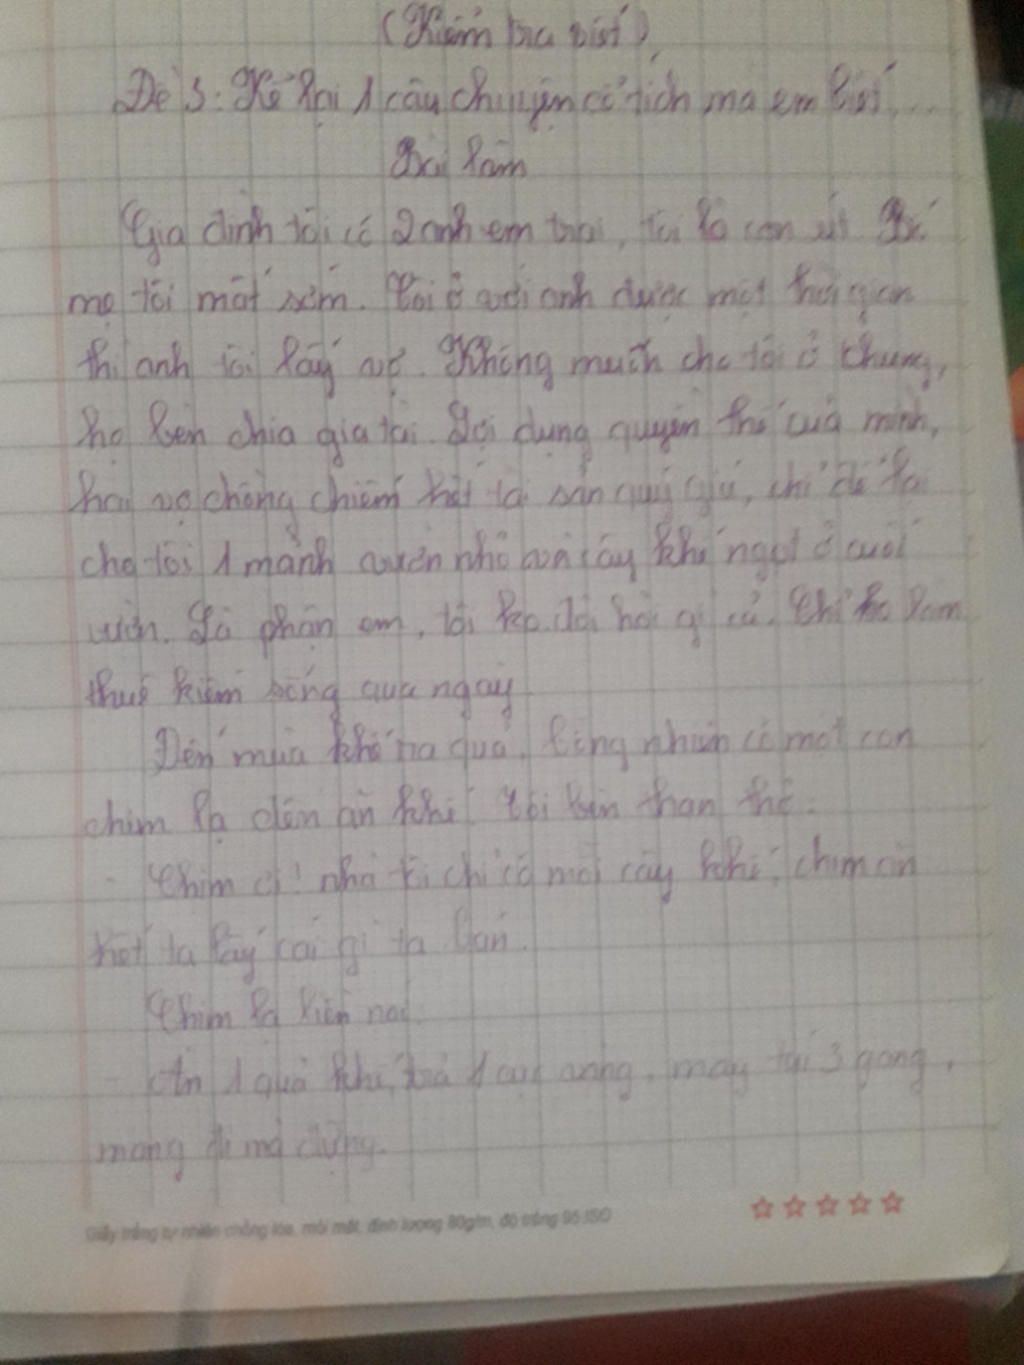 (Kiểm tra viết)
Đề 3: Kể lại 1 câu chuyện cổ tích mà em biết...
Bài làm
Gia đình tôi có 2 anh em trai, tôi là con út. Bố
mẹ tôi mất sớm. Tôi ở với anh được một thời gian
thì anh tôi lấy vợ. Không muốn cho tôi ở chung,
họ bèn chia gia tài. Lợi dụng quyền thế của mình,
hai vợ chồng chiếm hết tài sản quý giá, chỉ để lại
cho tôi 1 mảnh vườn nhỏ và cây khế ngọt ở cuối
vườn. Là phận em, tôi ko đòi hỏi gì cả. Chỉ lo làm
thuê kiếm sống qua ngày
Đến mùa khế ra quả. Bỗng nhiên có một con
chim lạ đến ăn khế. Tôi bèn than thở:
- Chim ơi! nhà ta chỉ có mỗi cây khế, chim ăn
hết ta lấy cái gì ta bán.
Chim lạ liền nói.
- Ăn 1 quả khế, trả 1 cục vàng, may túi 3 gang,
mang đi mà đựng.
Giấy trắng tự nhiên chống lóa, mỏi mắt, định lượng 80g/m, độ trắng 95 ISO